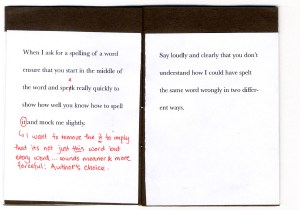 When I ask for a spelling of a word
ensure that you start in the middle of
the word and speak really quickly to
show how well you know how to spell
it and mock me slightly.
↳ I want to remove the it to imply
that its not just this word but
every word... sounds meaner & more
forceful. Author's choice.
Say loudly and clearly that you don't
understand how I could have spelt
the same word wrongly in two differ-
ent ways.